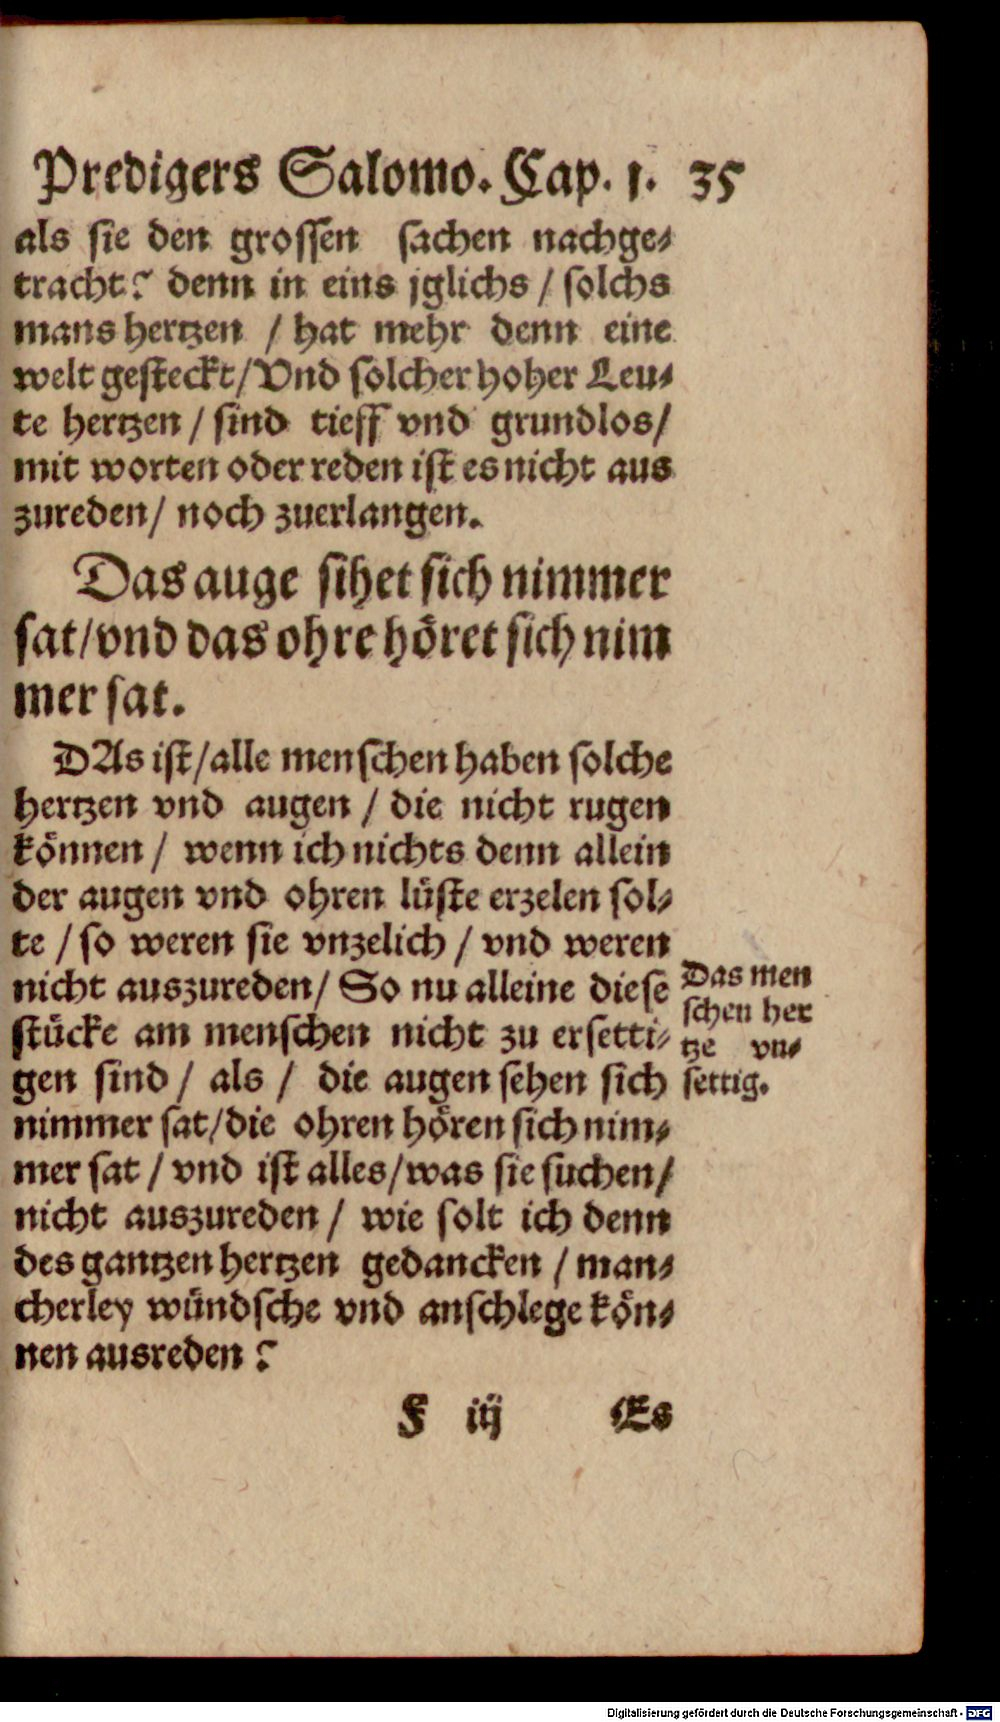 Predigers Salomo. Cap. 1. 35
als sie den grossen sachen nachge-
tracht? denn in eins jglichs / solchs
mans hertzen / hat mehr denn eine
welt gesteckt/Vnd solcher hoher Leu-
te hertzen / sind tieff vnd grundlos/
mit worten oder reden ist es nicht aus
zureden/ noch zuerlangen.
Das auge sihet sich nimmer
sat/vnd das ohre höret sich nim
mer sat.
DAs ist/alle menschen haben solche
hertzen vnd augen / die nicht rugen
können / wenn ich nichts denn allein
der augen vnd ohren lüste erzelen sol-
te / so weren sie vnzelich / vnd weren
nicht auszureden/ So nu alleine diese
stücke am menschen nicht zu ersetti-
gen sind / als / die augen sehen sich
nimmer sat/die ohren hören sich nim-
mer sat / vnd ist alles/was sie suchen/
nicht auszureden / wie solt ich denn
des gantzen hertzen gedancken / man-
cherley wündsche vnd anschlege kön-
nen ausreden ?
Das men
schen her
tze vn-
settig.
F iij Es
Digitalisierung gefördert durch die Deutsche Forschungsgemeinschaft - DFG